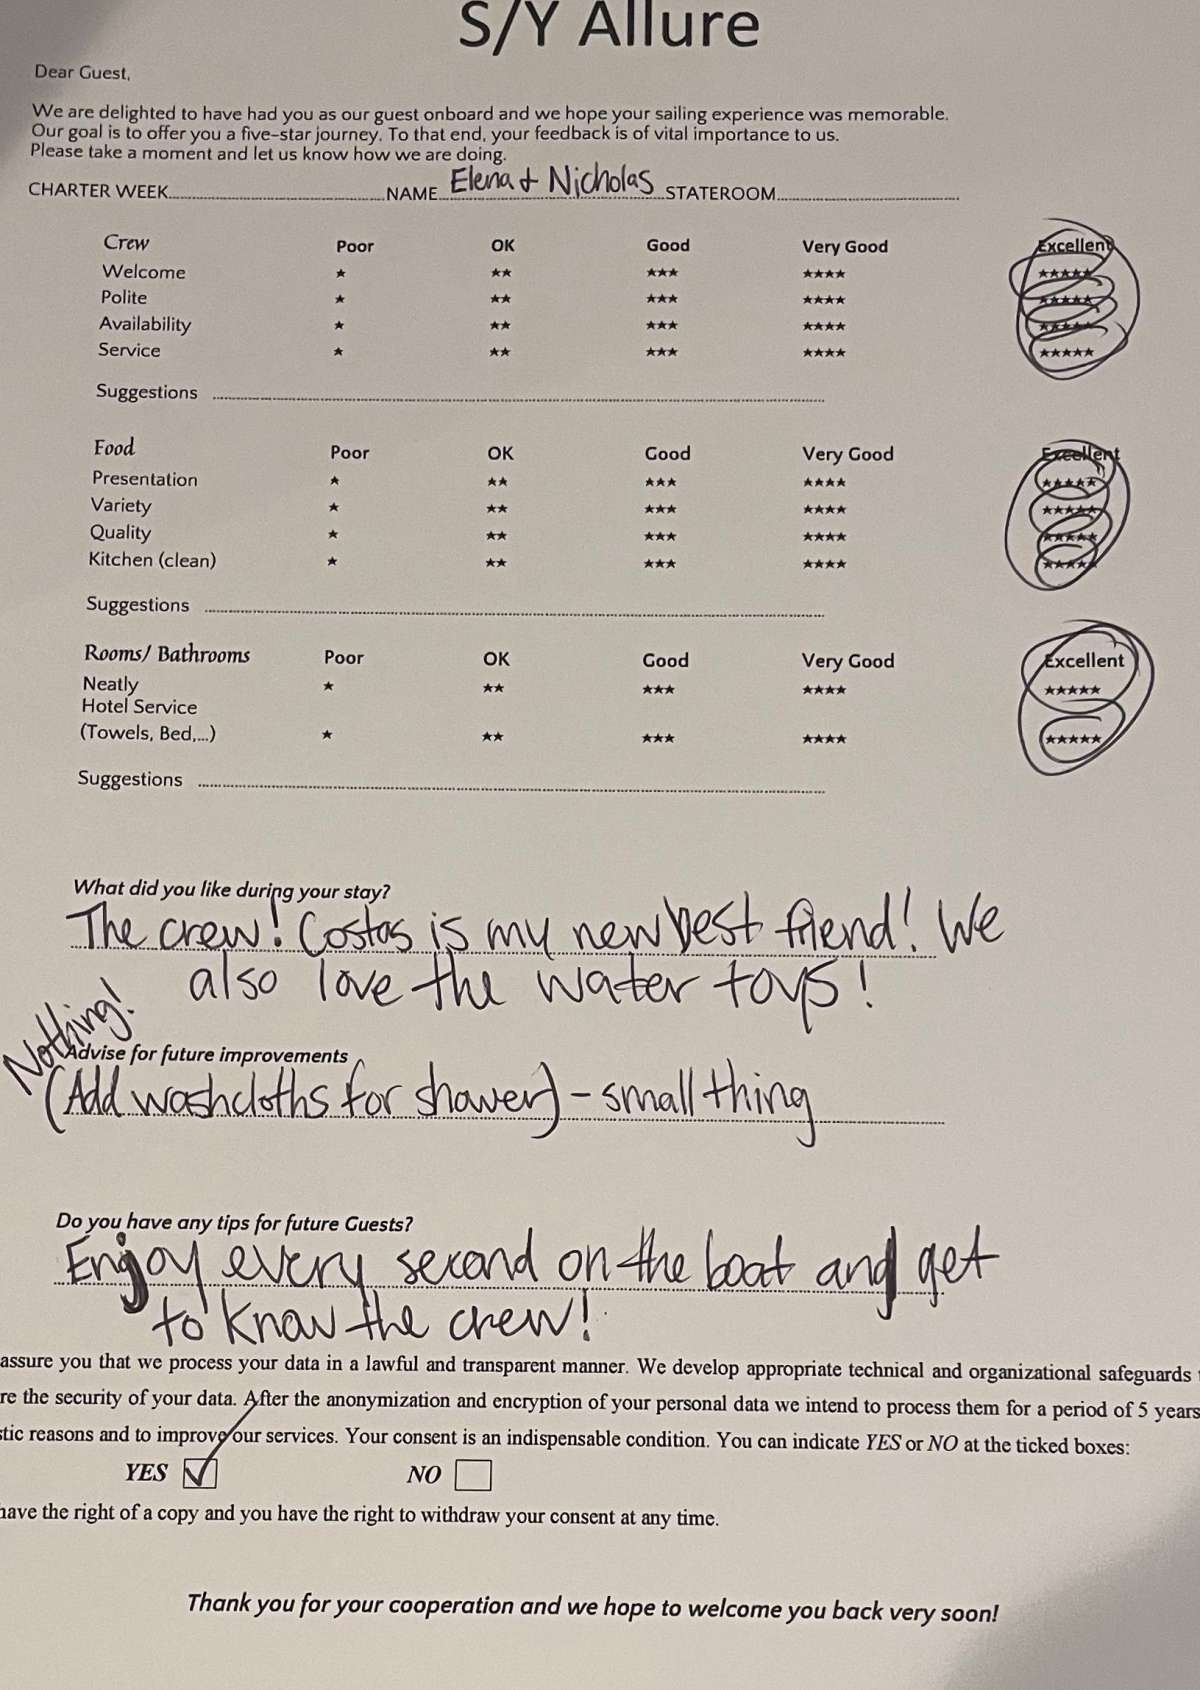 S/Y Allure
Dear Guest,
We are delighted to have had you as our guest onboard and we hope your sailing experience was memorable.
Our goal is to offer you a five-star journey. To that end, your feedback is of vital importance to us.
Please take a moment and let us know how we are doing.
CHARTER WEEK..........NAME Elena + Nicholas STATEROOM..........
Crew Poor OK Good Very Good Excellent
Welcome ★ ★★ ★★★ ★★★★ ★★★★★
Polite ★ ★★ ★★★ ★★★★ ★★★★★
Availability ★ ★★ ★★★ ★★★★ ★★★★★
Service ★ ★★ ★★★ ★★★★ ★★★★★
Suggestions ..........
Food Poor OK Good Very Good Excellent
Presentation ★ ★★ ★★★ ★★★★ ★★★★★
Variety ★ ★★ ★★★ ★★★★ ★★★★★
Quality ★ ★★ ★★★ ★★★★ ★★★★★
Kitchen (clean) ★ ★★ ★★★ ★★★★ ★★★★★
Suggestions ..........
Rooms/ Bathrooms Poor OK Good Very Good Excellent
Neatly ★ ★★ ★★★ ★★★★ ★★★★★
Hotel Service
(Towels, Bed,...) ★ ★★ ★★★ ★★★★ ★★★★★
Suggestions ..........
What did you like during your stay?
The crew! Costas is my new best friend! We
also love the water toys!
Nothing!
Advise for future improvements
(Add washcloths for shower) - small thing
Do you have any tips for future Guests?
Enjoy every second on the boat and get
to know the crew!
assure you that we process your data in a lawful and transparent manner. We develop appropriate technical and organizational safeguards
re the security of your data. After the anonymization and encryption of your personal data we intend to process them for a period of 5 years
stic reasons and to improve our services. Your consent is an indispensable condition. You can indicate YES or NO at the ticked boxes:
YES ☑ NO ☐
have the right of a copy and you have the right to withdraw your consent at any time.
Thank you for your cooperation and we hope to welcome you back very soon!